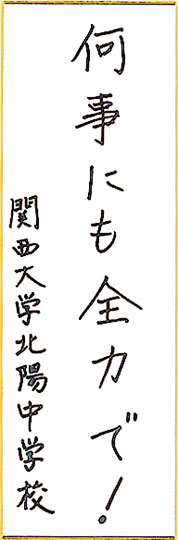 何事にも全力で！
関西大学北陽中学校